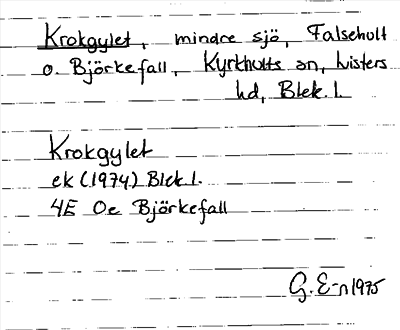 Krokgylet, mindre sjö, Falseholt
o. Björkefall, Kyrkhults sn, Listers
hd, Blek. l.
Krokgylet
ek (1974) Blek l.
4E 0e Björkefall
G. E-n 1975